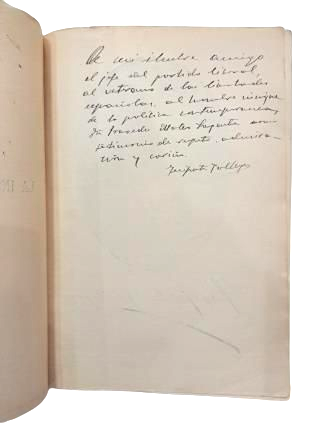 A mi ilustre amigo
el jefe del partido liberal,
al veterano de las libertades
españolas, al hombre insigne
de la política contemporánea,
Dn Práxedes Mateo Sagasta como
testimonio de respeto, admira-
ción y cariño.
LA